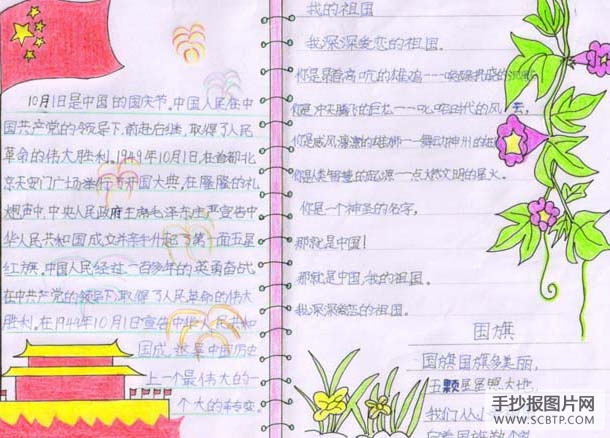 10月1日是中国的国庆节,中国人民在中
国共产党的领导下,前赴后继,取得了人民
革命的伟大胜利。1949年10月1日,在首都北
京天安门广场举行了开国大典,在隆隆的礼
炮声中,中央人民政府主席毛泽东庄严宣告中
华人民共和国成立并亲手升起了第一面五星
红旗。中国人民经过一百多年的英勇奋战,
在中共产党的领导下,取得了人民革命的伟大
胜利。在1949年10月1日宣告中华人民共和
国成立,是中国历史
上一个最伟大的一
个大的转变。
我的祖国
我深深爱恋的祖国。
你是昂首高吭的雄鸡——唤醒拂晓的
你是冲天腾飞的巨龙——叱咤时代的风云,
你是威风凛凛的雄狮——舞动神州的
你是人类智慧的起源——点燃文明的星火。
你是一个神圣的名字,
那就是中国!
那就是中国,我的祖国。
我深深爱恋的祖国。
国旗
国旗国旗多美丽,
五颗星星照大地,
我们从小
向着国旗
手抄报图片网
WWW.SCBTP.COM